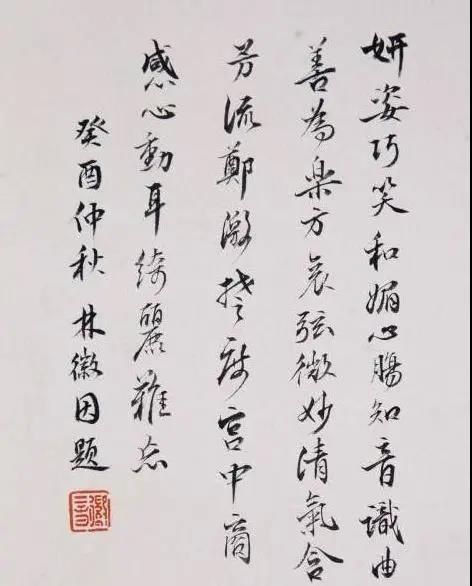 妍姿巧笑和媚心腸知音識曲
善為樂方哀弦微妙清氣含
芳流鄭激楚度宮中商
感心動耳綺麗難忘
癸酉仲秋 林徽因題
徽音